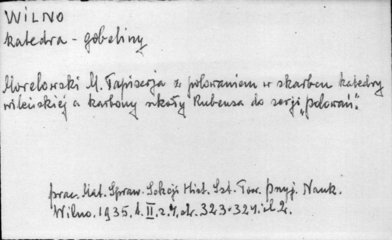 WILNO
katedra - gobeliny
Morelowski M. Tapiserja z polowaniem w skarbcu katedry
wileńskiej a kartony szkoły Rubensa do serji „polowań".
prac. Mat. Spraw. Sekcji Hist. Szt. Tow. Przyj. Nauk.
Wilno. 1935. t. II, z. 4, st. 323-324. il 2.